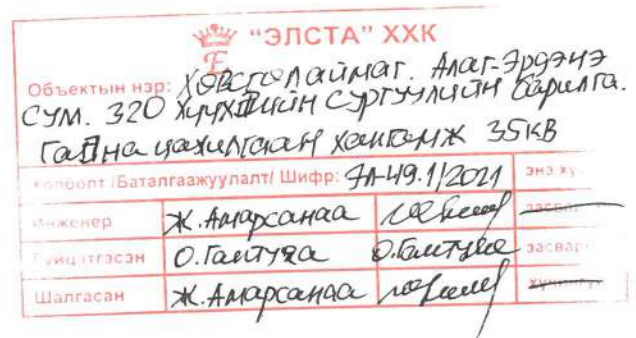 "ЭЛСТА" ХХК
Е
Объектын нэр: Хөвсгөл аймаг. Алаг-Эрдэнэ
сум. 320 хүүхдийн сургуулийн барилга.
Гадна цахилгаан хангамж 35кВ
/Баталгаажуулалт/ Шифр: ЭЛ-49.1/2021 энэ
Инженер Ж.Амарсанаа
Гүйцэтгэсэн О.Гантуяа О.Гантуяа
Шалгасан Ж.Амарсанаа